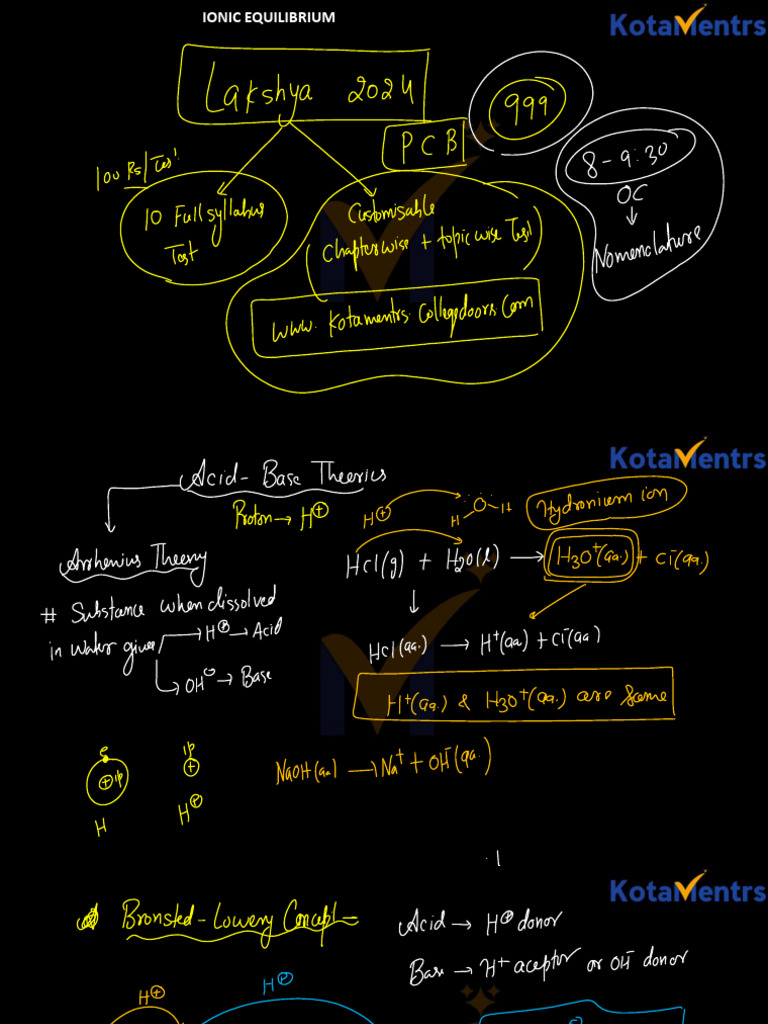 IONIC EQUILIBRIUM
KotaMentrs
Lakshya 2024
999
PCB
8-9:30
OC
↓
Nomenclature
100 Rs/Test
10 Full syllabus
Test
Customisable
(Chapterwise + topic wise Test)
www.Kotamentrs.Collegedoors.Com
KotaMentrs
Acid-Base Theories
Proton → H⊕
H⊕
H O H
Hydronium ion
Arrhenius Theory
HCl(g) + H2O(l) → H3O+(aq.) + Cl-(aq.)
# Substance when dissolved
in water gives → H⊕ → Acid
→ OH⊖ → Base
HCl(aq.) → H+(aq) + Cl-(aq)
H+(aq.) & H3O+(aq.) are same
e 1p
⊕ 1p ⊕
H H⊕
NaOH(aq) → Na+ + OH-(aq.)
KotaMentrs
Bronsted-Lowery Concept =
Acid → H⊕ donor
Base → H+ aceptor or OH- donor
H⊕ H⊕